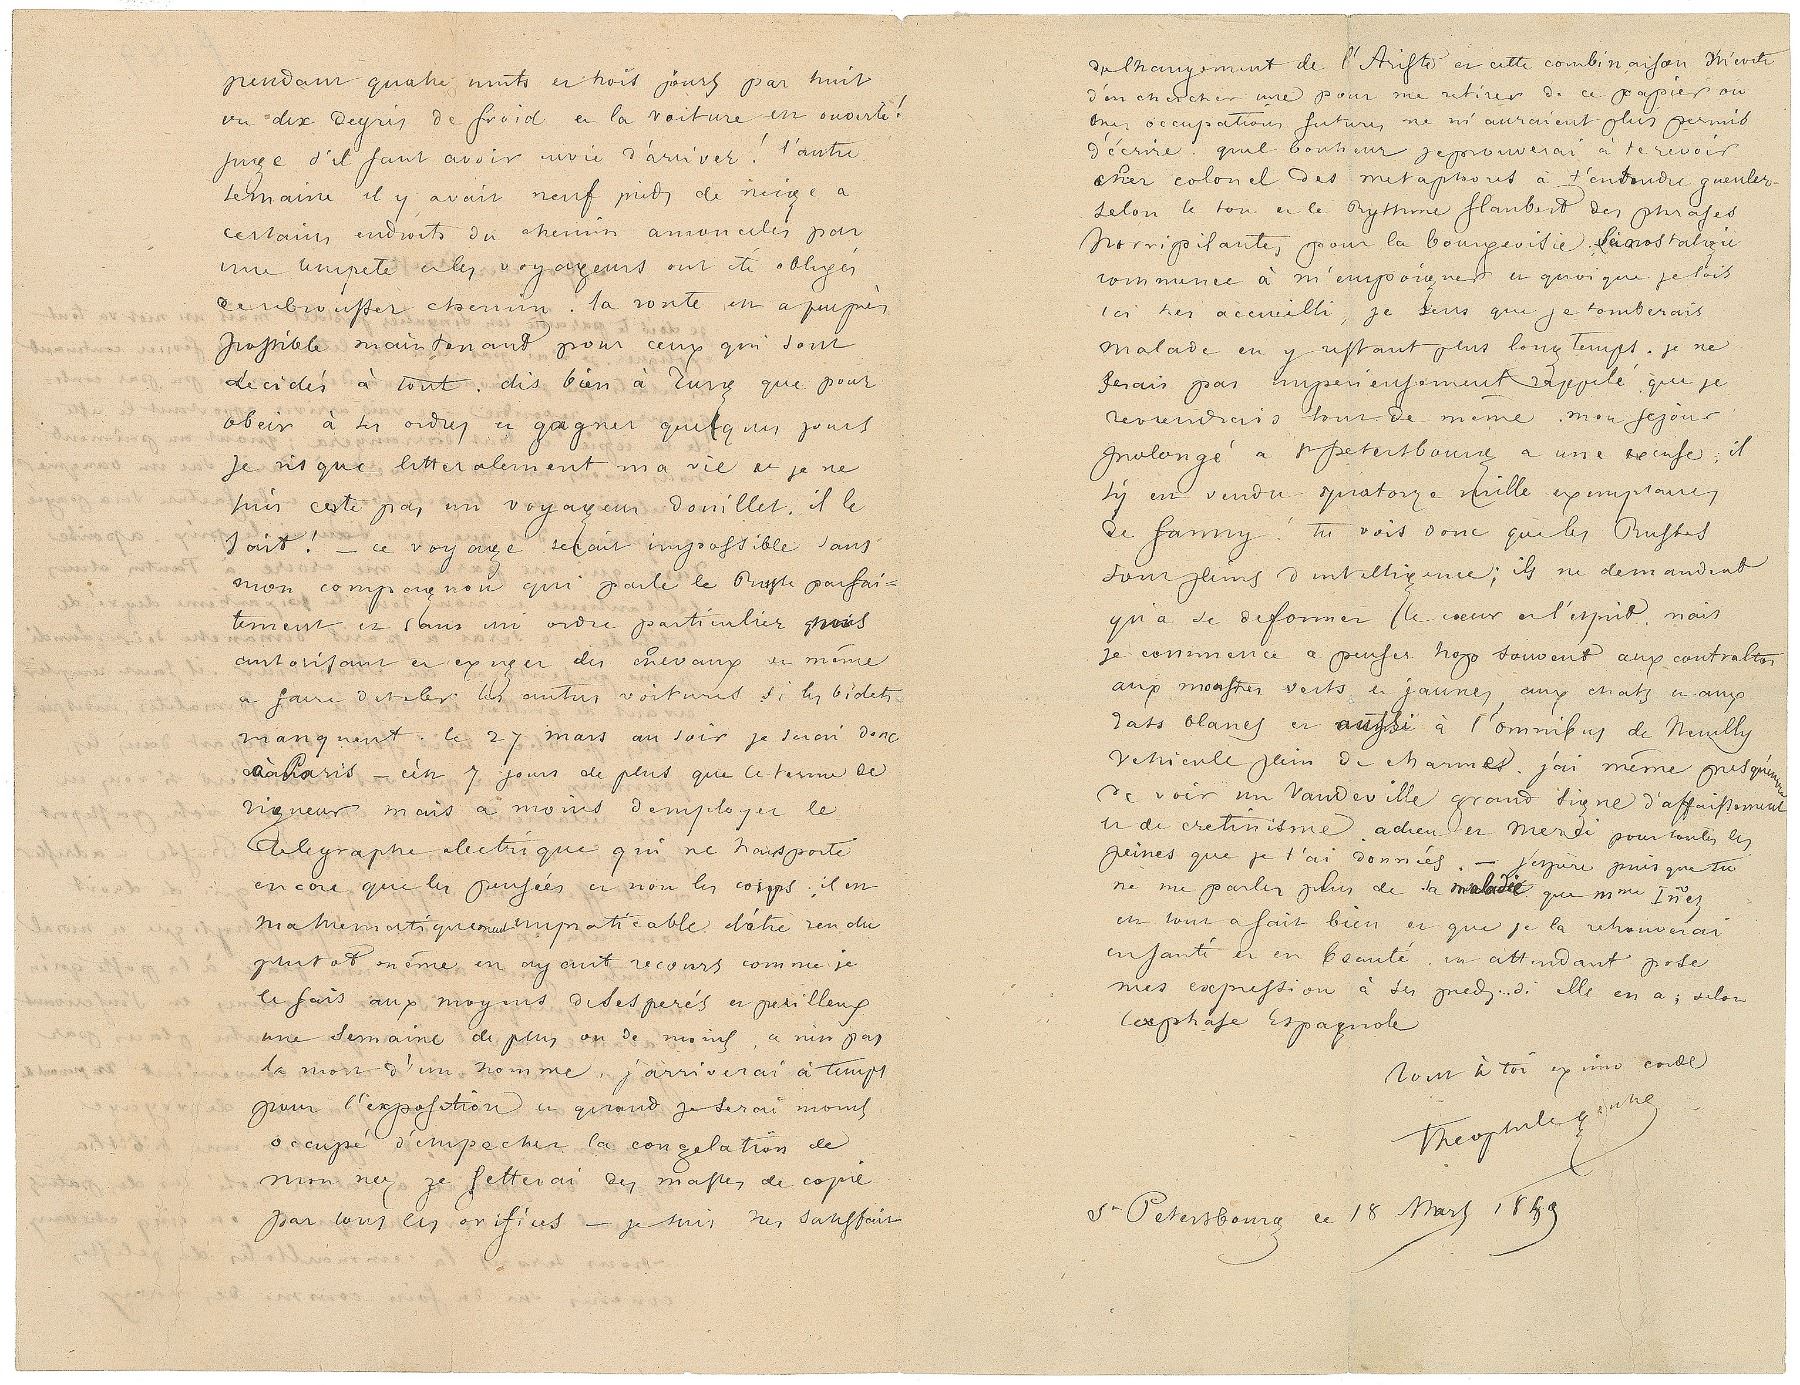 pendant quatre nuits et trois jours par huit
ou dix degrés de froid et la voiture est ouverte!
juge s'il faut avoir envie d'arriver! l'autre
semaine il y avait neuf pieds de neige a
certains endroits du chemin amoncelés par
une tempete et les voyageurs ont été obligés
de rebrousser chemin. la route est a peu près
possible maintenant pour ceux qui sont
decidés à tout. dis bien à Turg que pour
obeir à ses ordres et gagner quelques jours
je risque litteralement ma vie et je ne
suis certe pas un voyageur douillet. il le
sait! — ce voyage serait impossible sans
mon compagnon qui parle le Russe parfai=
tement et sans un ordre particulier nous
autorisant et exiger des chevaux et même
a faire dételer les autres voitures si les bidets
manquent. le 27 mars au soir je serai donc
à Paris — c'est 7 jours de plus que le terme de
rigueur mais a moins d'employer le
Telegraphe electrique qui ne transporte
encore que les pensées et non les corps il est
mathematiquement impraticable d'être rendu
plutot même en ayant recours comme je
le fais aux moyens desesperés et perilleux
une semaine de plus ou de moins, a n'est pas
la mort d'un homme, j'arriverai à temps
pour l'exposition et quand je serai moins
occupé d'empecher la congelation de
mon nez je jetterai des masses de copie
par tous les orifices — je suis tres satisfait
du changement de l'Artiste et cette combinaison m'évite
d'en chercher une pour me retirer de ce papier ou
mes occupations futures ne m'auraient plus permis
d'écrire. quel bonheur j'eprouverai à te revoir
cher colonel des metaphores à t'entendre gueuler
selon le ton et le Rythme flaubert des phrases
horripilantes pour la bourgeoisie. la nostalgie
commence à m'empoigner et quoique je sois
ici tres accueilli, je sens que je tomberais
malade en y restant plus long temps. je ne
serais pas imperieusement rappelé que je
reviendrais tout de même. mon sejour
prolongé a St petersbourg a une excuse; il
s'y est vendu quatorze mille exemplaires
de fanny! tu vois donc que les Russes
sont pleins d'intelligence; ils ne demandent
qu'a se deformer le cœur et l'esprit. mais
je commence a penser trop souvent aux contraltos
aux monstres verts et jaunes, aux chats et aux
rats blancs et aussi à l'omnibus de Neuilly
vehicule plein de charmes. j'ai même presqu'envie
de voir un Vaudeville grand signe d'affaissement
et de cretinisme. adieu et merci pour toutes les
peines que je t'ai données. — j'espère puisque tu
ne me parles plus de sa maladie que mme Iñes
est tout a fait bien et que je la retrouverai
en santé et en beauté. en attendant pose
mes expression à ses pieds.. si elle en a; selon
la phrase Espagnole
tout à toi ex imo corde
Theophile gautier
St Petersbourg ce 18 Mars 1859